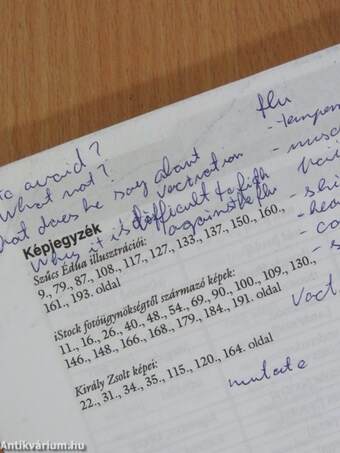 flu
to avoid?
What not?
What does he say about
vactration
Why it is difficult to figh
against the flu
Képjegyzék
Szűcs Édua illusztrációi:
9., 79., 87., 108., 117., 127., 133., 137., 150., 160.,
161., 193. oldal
iStock fotóügynökségtől származó képek:
11., 16., 26., 40., 48., 54., 69., 90., 100., 109., 130.,
146., 148., 166., 168., 179., 184., 191. oldal
Király Zsolt képei:
22., 31., 34., 35., 115., 120., 164. oldal
mutate
Antikvárium.hu